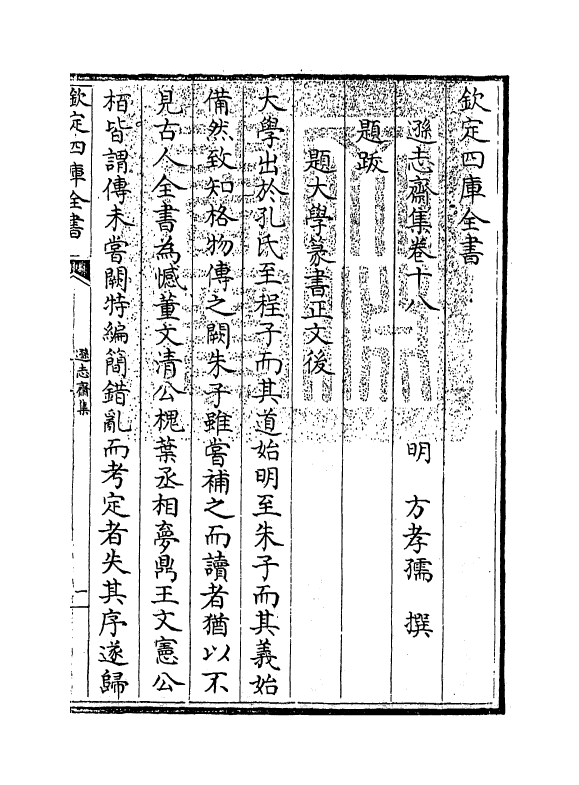 欽定四庫全書
遜志齋集卷十八
明　方孝孺　撰
題跋
題大學篆書正文後
大學出於孔氏至程子而其道始明至朱子而其義始
備然致知格物傳之闕朱子雖嘗補之而讀者猶以不
見古人全書為憾董文清公槐葉丞相夢鼎王文憲公
栢皆謂傳未嘗闕特編簡錯亂而考定者失其序遂歸
欽定四庫全書
遜志齋集
一